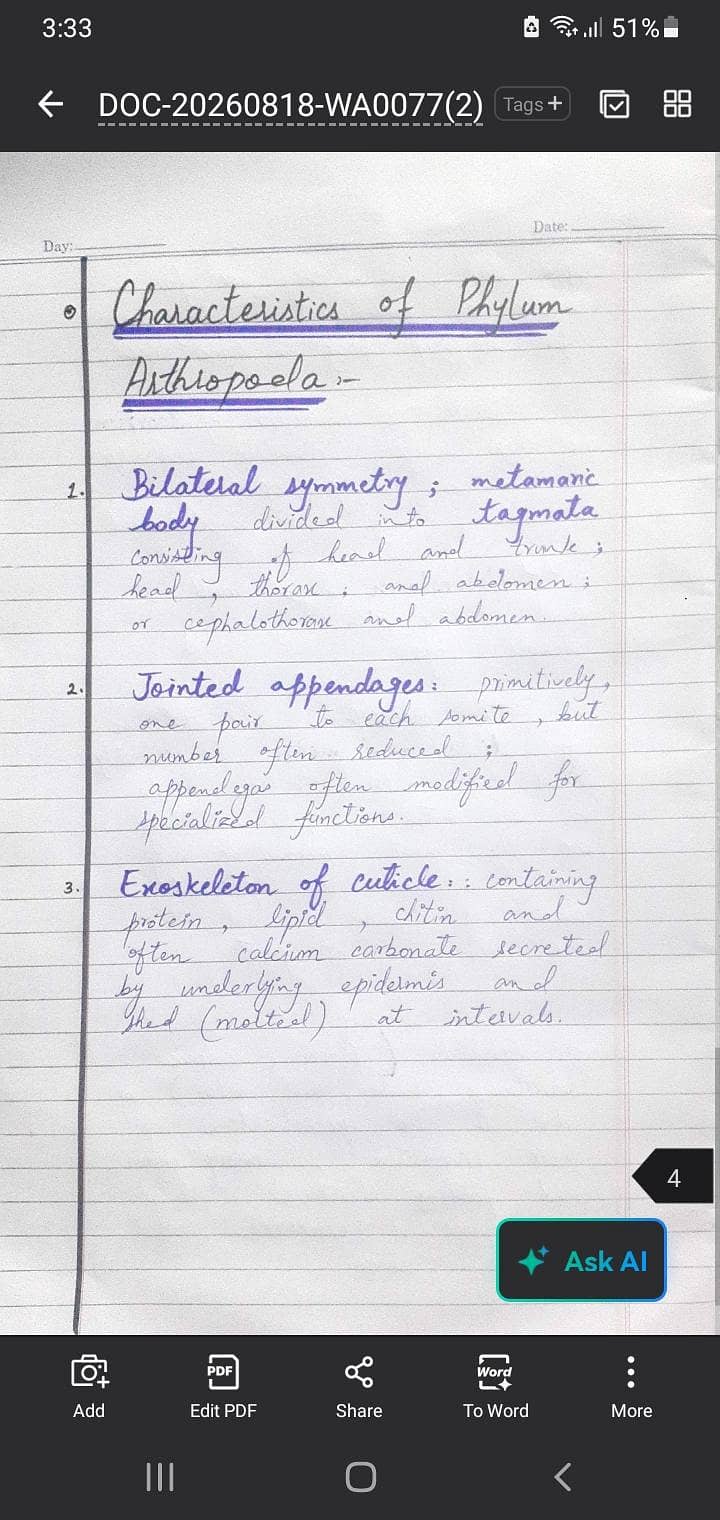 3:33
51%
DOC-20260818-WA0077(2)
Tags+
Date:
Day:
Characteristics of Phylum
Arthropoda :-
1. Bilateral symmetry ; metamaric
body divided into tagmata
consisting of head and trunk ;
head , thorax ; and abdomen ;
or cephalothorax and abdomen.
2. Jointed appendages : primitively,
one pair to each somite , but
number often reduced ;
appendegas often modified for
specialized functions.
3. Exoskeleton of cuticle : : containing
protein , lipid , chitin and
often calcium carbonate secreted
by underlying epidermis and
shed (molted) at intervals.
4
Ask AI
Add
PDF
Edit PDF
Share
Word
To Word
More